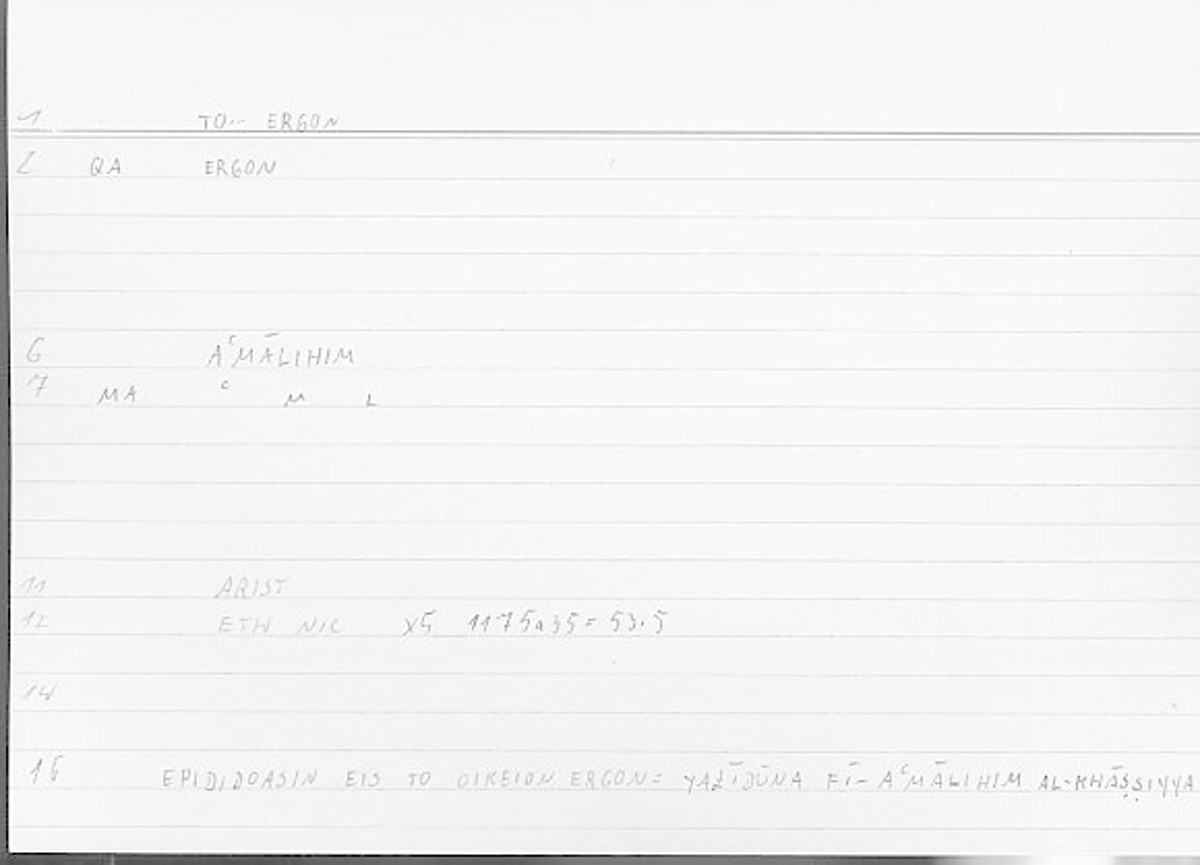 1 TO·· ERGON
2 QA ERGON
6 AʿMĀLIHIM
7 MA ʿ M L
11 ARIST
12 ETH NIC X5 1175a35 = 53.5
14
16 EPIDIDOASIN EIS TO OIKEION ERGON = YAZĪDŪNA FĪ- AʿMĀLIHIM AL-KHĀṢṢIYYA